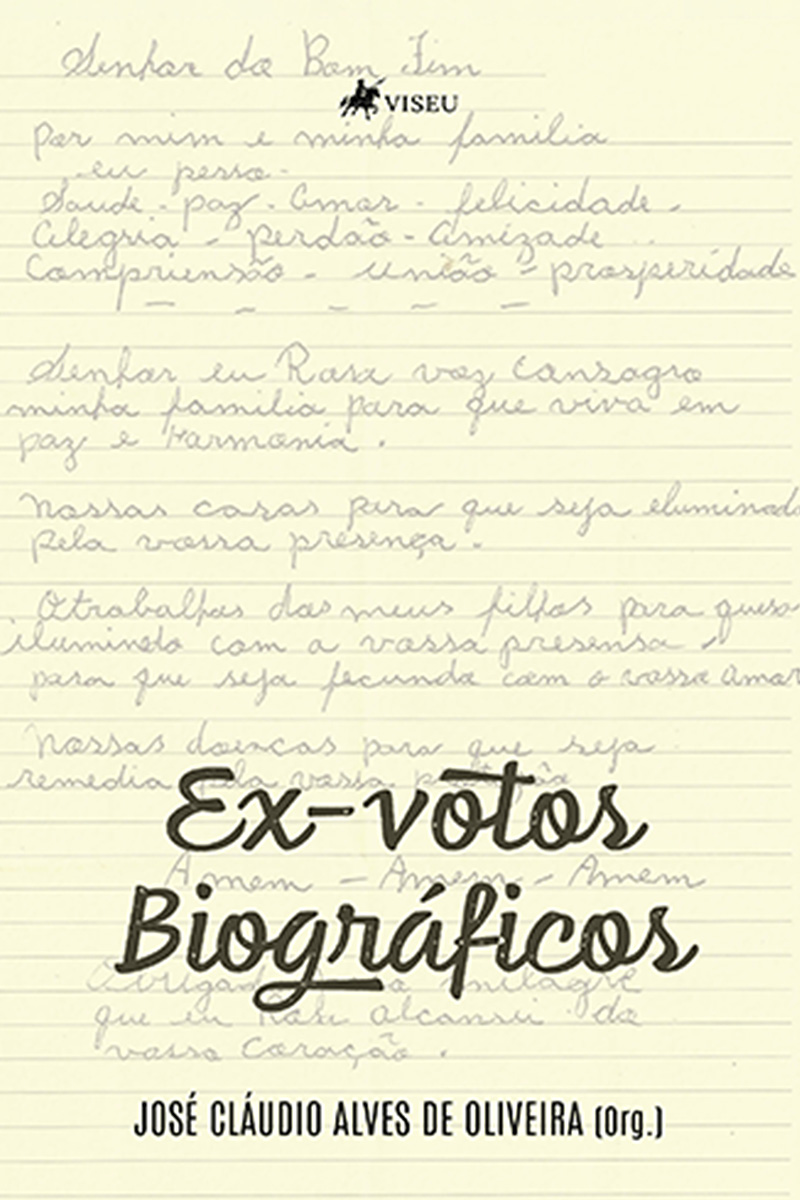 Senhor do Bom Fim
VISEU
Por mim e minha familia
eu pesso -
Saude - paz - Amor - felicidade -
Alegria - perdão - Amizade
Compriensão - união - prosperidade
Senhor eu Rosa voz Conzagro
minha familia para que viva em
paz e Harmonia .
Nossas casas para que seja eluminado
pela vossa presença .
O trabalhos dos meus filhos para
ilumindo com a vossa presensa
para que seja fecundo com o vosso Amor
Nossas doencas para que seja
remedia pela vossa
Ex-votos
Amem - Amem - Amem
Biográficos
milagre
que eu Rosa alcansei do
vosso Coração .
JOSÉ CLÁUDIO ALVES DE OLIVEIRA (Org.)